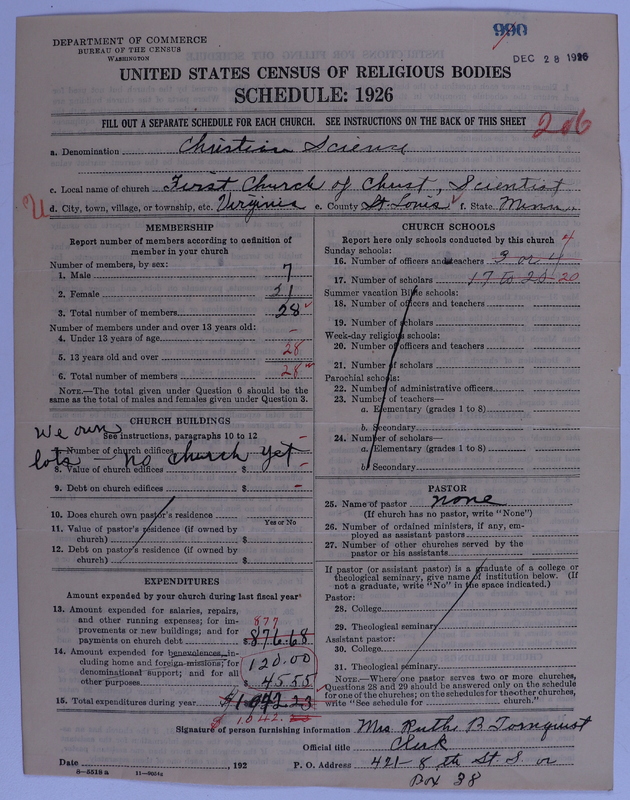 990
DEC 28 1926
DEPARTMENT OF COMMERCE
BUREAU OF THE CENSUS
WASHINGTON
UNITED STATES CENSUS OF RELIGIOUS BODIES
SCHEDULE: 1926
FILL OUT A SEPARATE SCHEDULE FOR EACH CHURCH. SEE INSTRUCTIONS ON THE BACK OF THIS SHEET
206
a. Denomination Christian Science
c. Local name of church First Church of Christ, Scientist
U
d. City, town, village, or township, etc. Virginia e. County St. Louis f. State Minn
MEMBERSHIP
Report number of members according to definition of
member in your church
Number of members, by sex:
1. Male 7
2. Female 21
3. Total number of members 28
Number of members under and over 13 years old:
4. Under 13 years of age –
5. 13 years old and over 28
6. Total number of members 28
NOTE.—The total given under Question 6 should be the
same as the total of males and females given under Question 3.
CHURCH BUILDINGS
See instructions, paragraphs 10 to 12
We own
lots – no church yet
7. Number of church edifices –
8. Value of church edifices $ –
9. Debt on church edifices $ –
10. Does church own pastor's residence
Yes or No
11. Value of pastor's residence (if owned by
church) $
12. Debt on pastor's residence (if owned by
church) $
EXPENDITURES
Amount expended by your church during last fiscal year
13. Amount expended for salaries, repairs,
and other running expenses; for im-
provements or new buildings; and for
payments on church debt $ 876.68
877
14. Amount expended for benevolences, in-
cluding home and foreign missions; for
denominational support; and for all
other purposes $
120.00
45.55
15. Total expenditures during year $1,042.23
$ 1,042.
CHURCH SCHOOLS
Report here only schools conducted by this church
Sunday schools:
16. Number of officers and teachers 3 or 4 4
17. Number of scholars 17 to 20 20
Summer vacation Bible schools:
18. Number of officers and teachers
19. Number of scholars
Week-day religious schools:
20. Number of officers and teachers
21. Number of scholars
Parochial schools:
22. Number of administrative officers
23. Number of teachers—
a. Elementary (grades 1 to 8)
b. Secondary
24. Number of scholars—
a. Elementary (grades 1 to 8)
b. Secondary
PASTOR
25. Name of pastor none
(If church has no pastor, write "None")
26. Number of ordained ministers, if any, em-
ployed as assistant pastors
27. Number of other churches served by the
pastor or his assistants
If pastor (or assistant pastor) is a graduate of a college or
theological seminary, give name of institution below. (If
not a graduate, write "No" in the space indicated.)
Pastor:
28. College
29. Theological seminary
Assistant pastor:
30. College
31. Theological seminary
NOTE.—Where one pastor serves two or more churches,
Questions 28 and 29 should be answered only on the schedule
for one of the churches; on the schedules for the other churches,
write "See schedule for church."
Signature of person furnishing information Mrs. Ruthe B. Tornquist
Official title Clerk
Date , 192 P. O. Address 421- 8th St. S. or
Box 38
8-5518a